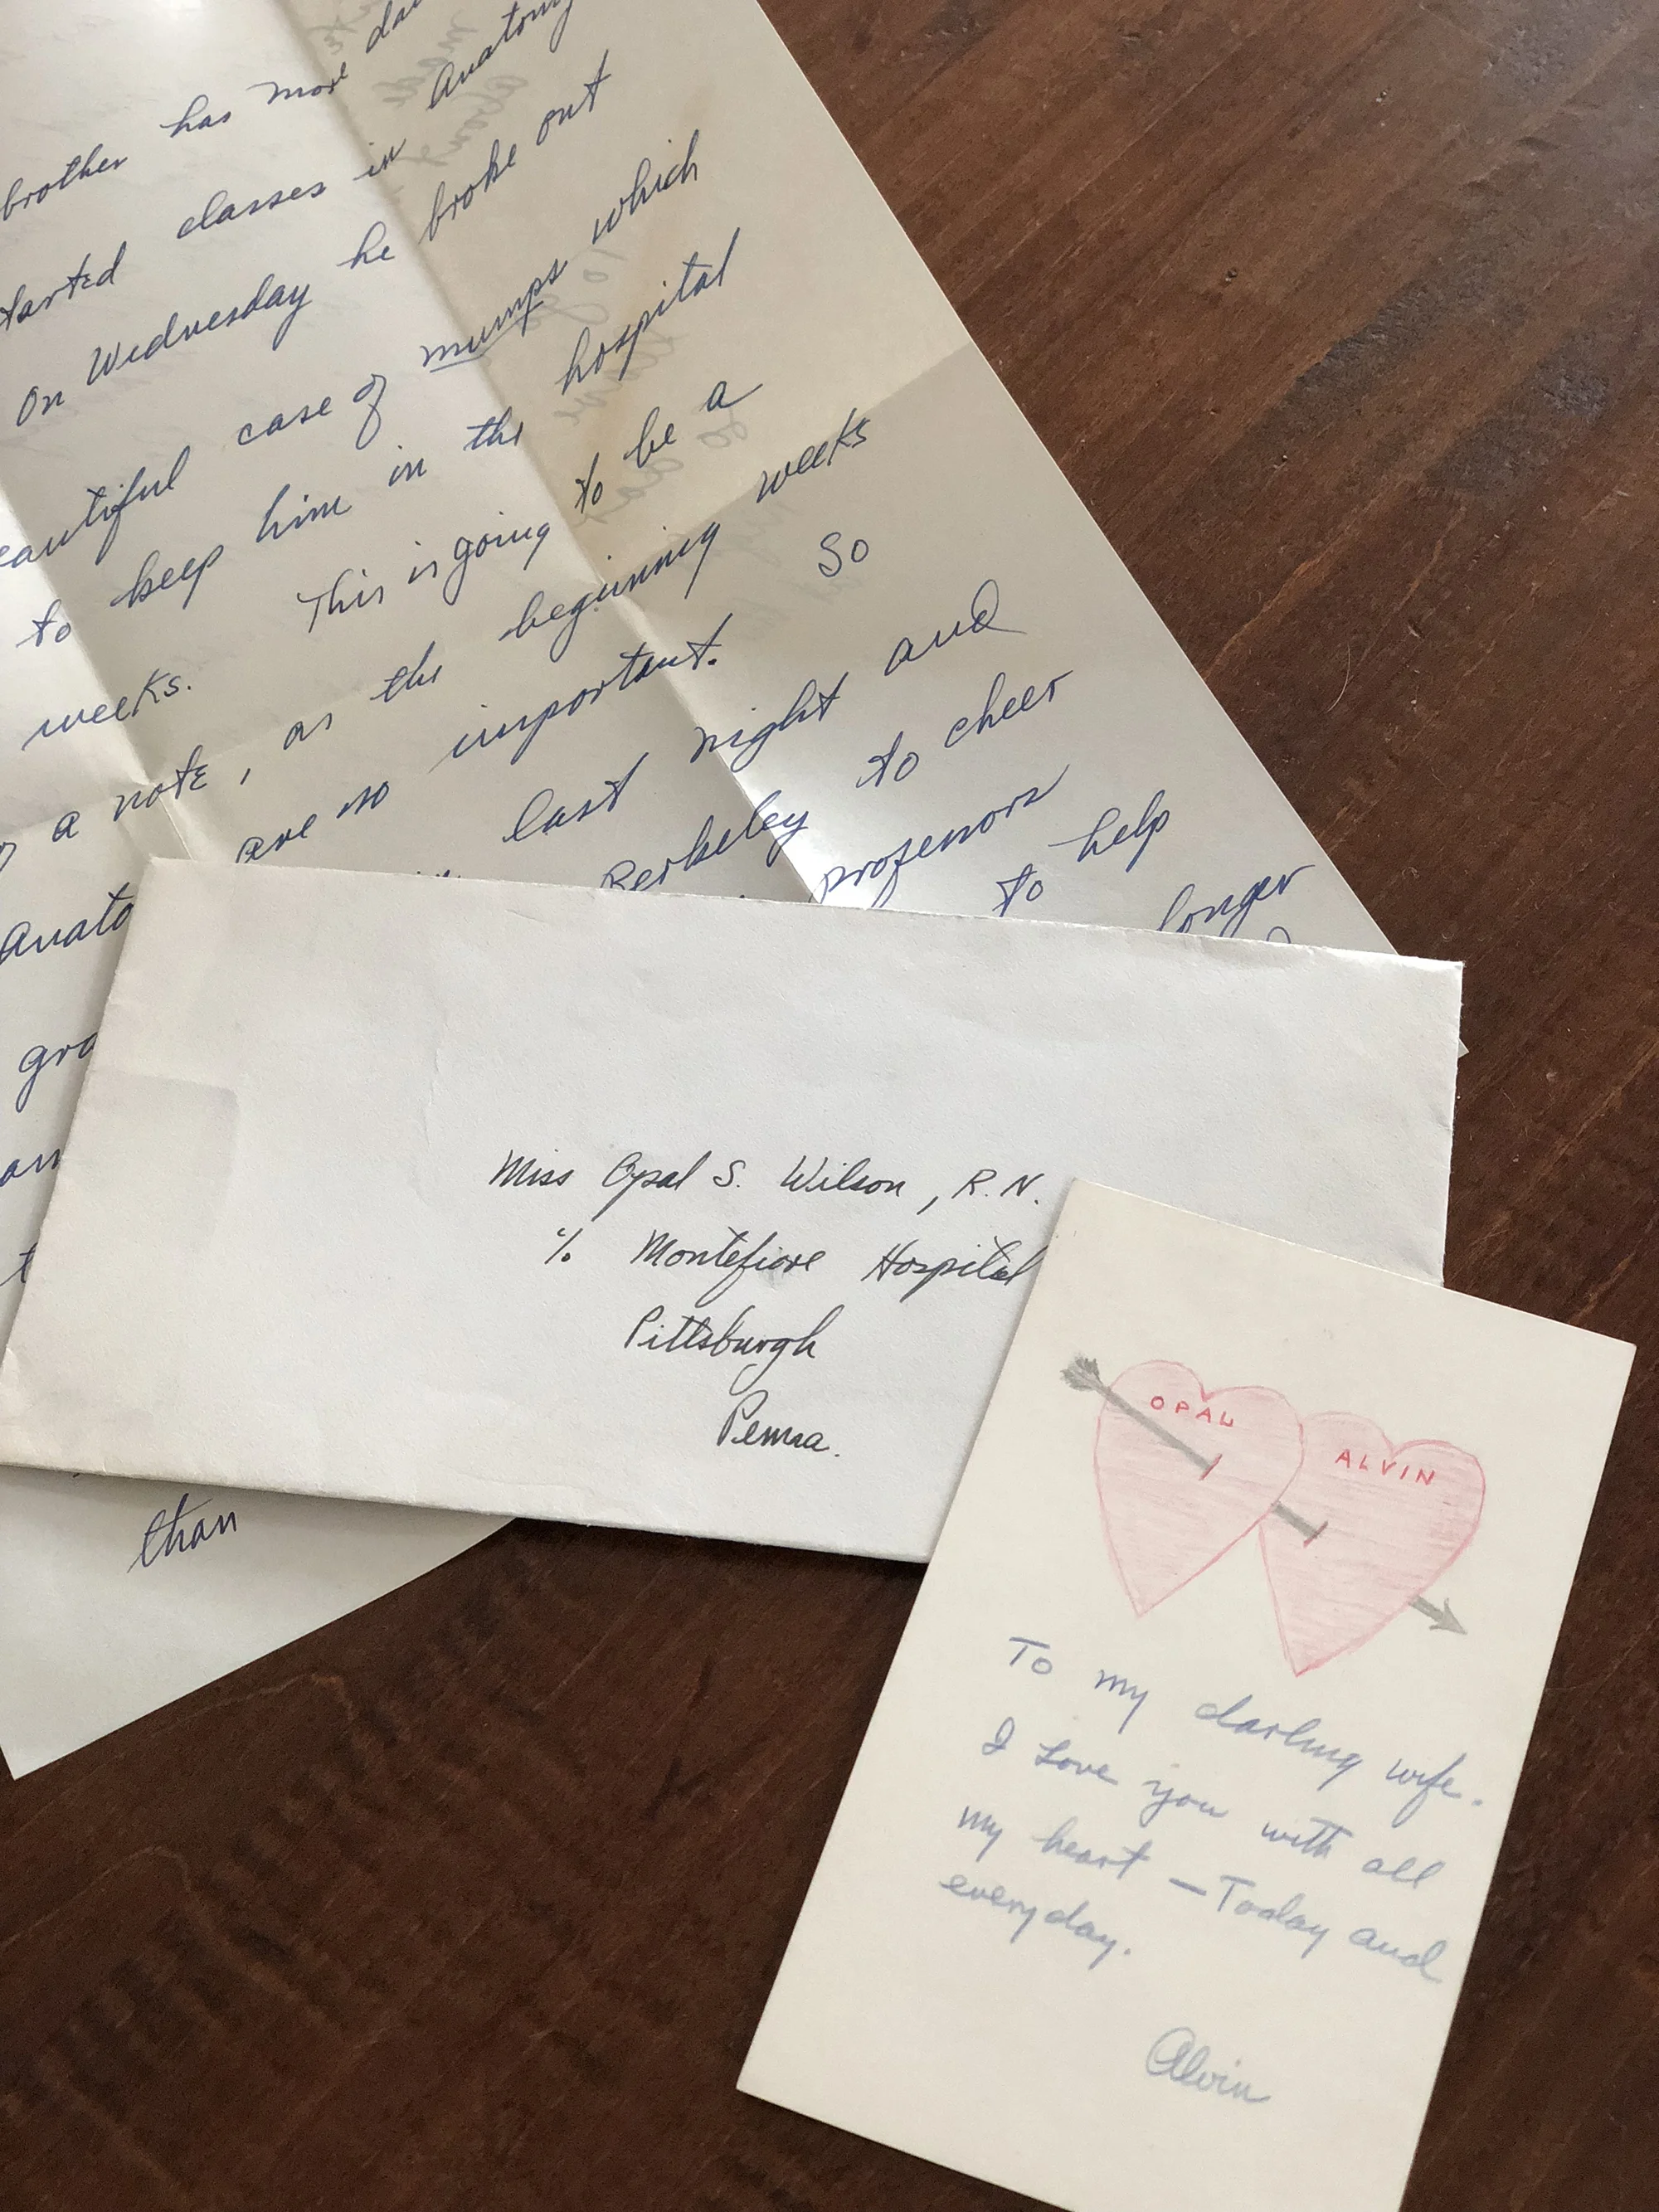 brother has more
started classes in Anatomy
On Wednesday he broke out
beautiful case of mumps which
to keep him in the hospital
weeks. This is going to be a
a note, as the beginning weeks
are so important. So
last night and
Berkeley to cheer
professors
to help
longer
Anato
gra
than
Miss Opal S. Wilson, R.N.
% Montefiore Hospital
Pittsburgh
Penna.
OPAL
ALVIN
To my darling wife.
I Love you with all
my heart – Today and
everyday.
Alvin